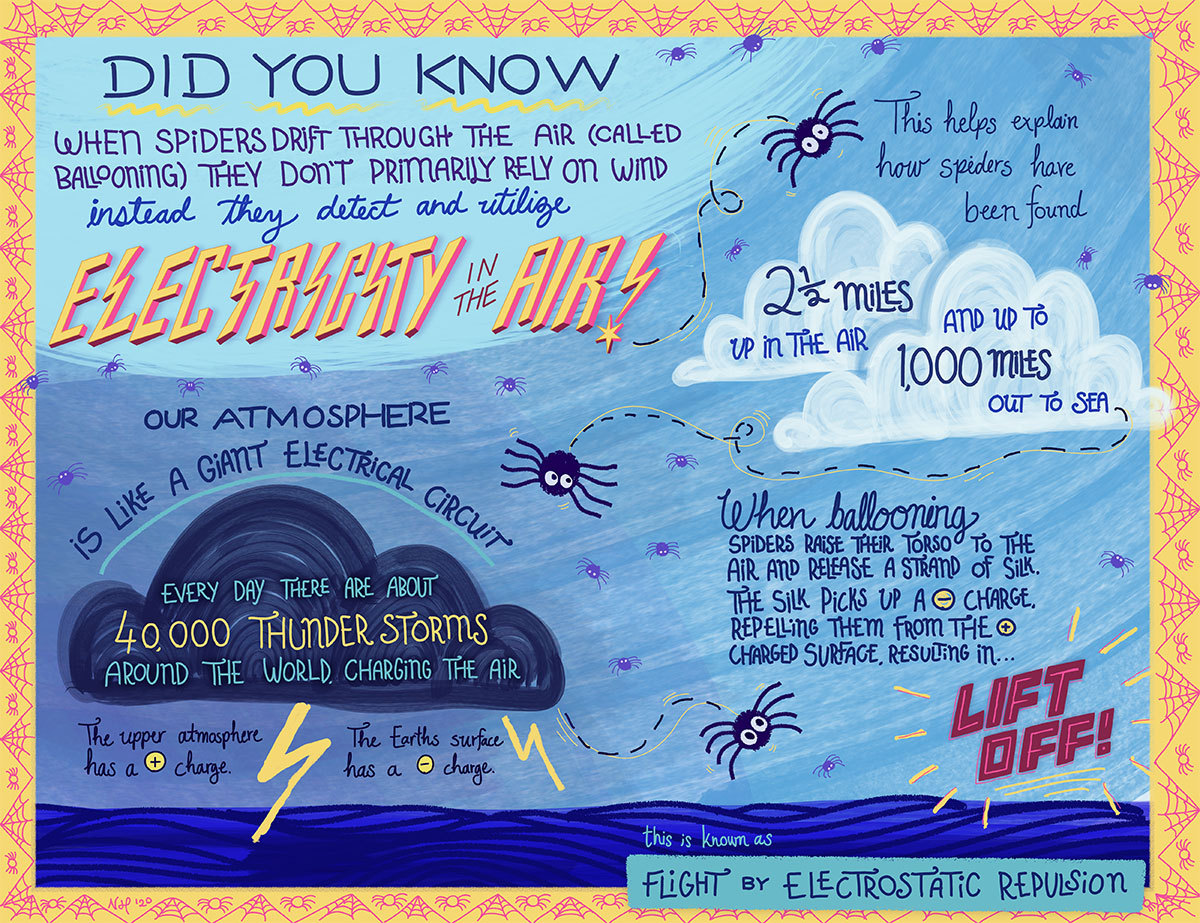 DID YOU KNOW
WHEN SPIDERS DRIFT THROUGH THE AIR (CALLED
BALLOONING) THEY DON'T PRIMARILY RELY ON WIND
instead they detect and utilize
ELECTRICITY IN THE AIR!
This helps explain
how spiders have
been found
2½ MILES
UP IN THE AIR
AND UP TO
1,000 MILES
OUT TO SEA
OUR ATMOSPHERE
IS LIKE A GIANT ELECTRICAL CIRCUIT
EVERY DAY THERE ARE ABOUT
40,000 THUNDER STORMS
AROUND THE WORLD, CHARGING THE AIR
The upper atmosphere
has a + charge.
The Earths surface
has a - charge.
When ballooning
SPIDERS RAISE THEIR TORSO TO THE
AIR AND RELEASE A STRAND OF SILK.
THE SILK PICKS UP A - CHARGE,
REPELLING THEM FROM THE +
CHARGED SURFACE, RESULTING IN...
LIFT
OFF!
this is known as
FLIGHT BY ELECTROSTATIC REPULSION